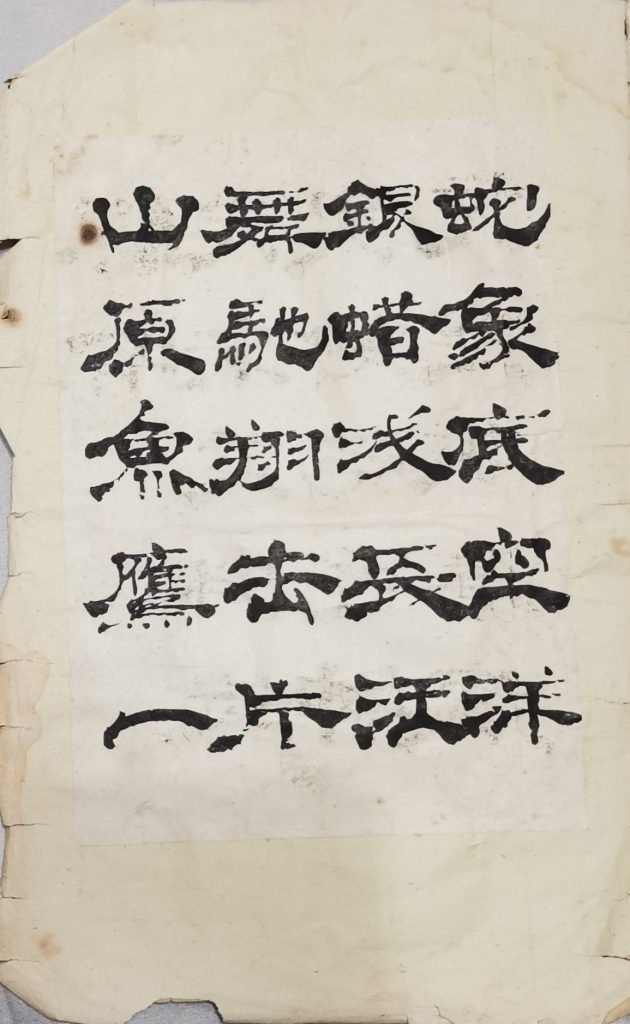 山舞銀蛇
原馳蜡象
魚翔浅底
鷹击長空
一片汪洋